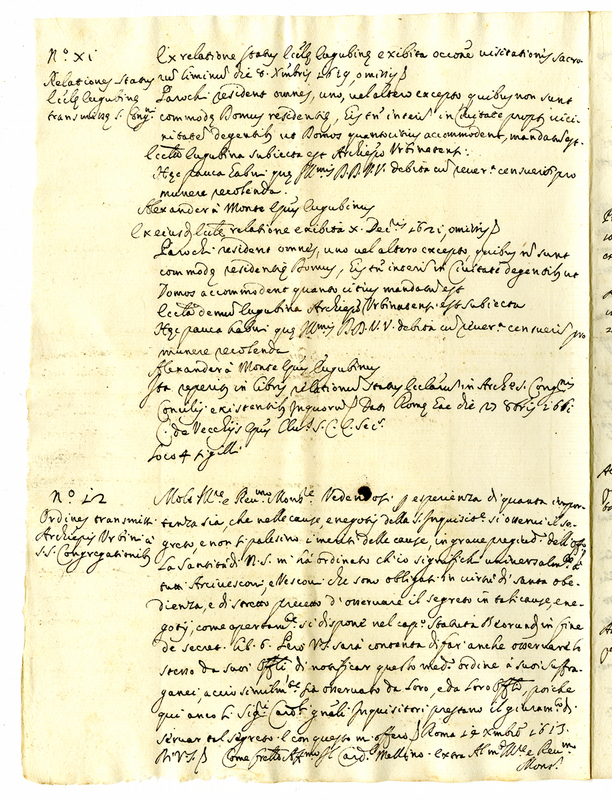 N.º XI
Relationes Status
Eccłiæ Eugubinæ
transmissæ S. Congni
Ex relatione Status Eccłiæ Eugubinæ exibita occōne visitationis sacro
rū liminū die 6. Xmbris 1619, omissis
Parochi resident omnes, uno, vel altero excepto quibus non sunt
commodæ Domus residentiæ, Eis tn̄ interim in Civitate propter vici
nitatē degentibus ut Domos quantocitius accommodent, mandatū est.
Eccłia Eugubina subiecta est Archiepo Urbinatensi:
Hæc pauca habui quæ Illmis DD. VV. debita cū reverā censuerim pro
munere recolenda.
Alexander à Monte Epus Eugubinus
Ex eiusdem Eccłiæ relatione exibita X. Decris 1621, omissis
Parochi resident omnes, uno vel altero excepto, quibus nō sunt
commodæ residentiæ Domus, Eis tn̄ interim in Civitate degentibus ut
Domos accommodent quanto citius mandatū est
Eccłia demū Eugubina Archiepo Urbinatensi est subiecta
Hæc pauca habui quæ Illmis DD. VV. debita cū reverā censuerim pro
munere recolenda
Alexander à Monte Epus Eugubinus
Ita reperitur in libris relationum Status Ecclarum in Archo S. Congnis
Concilij existentibus In quorum Dat. Romæ hac die 27 8bris 1661
C. de Vecchijs Epus S. C. C. Secs.
Loco + sigilli
N.º 12
Ordines transmissi
Archiepo Urbini à
SS. Congregationibus
Molto Illre e Revmo Monsre Vedendosi p esperienza di quanta impor
tenza sia, che nelle cause, e negotij della S. Inquisitne si osservi il se
greto, e non si palesino i meriti delle cause, in grave pregiud.o dell'Offo
La Santità di N. S. m'hà ordinato ch'io significhi universalmte à
tutti Arcivescovi, e Vescovi che sono obligati in virtù di santa obe
dienza, e di stretto precetto d'osservare il segreto in tali cause, e ne
gotij, come apertamte si dispone nel capo Statuta Deorundi in fine
de secret. lib. 6. Però V.S. sarà contenta di far anche osservare lo
stesso da suoi Offłi di notificar questo medo ordine à suoi suffra
ganei, acciò similmte sia osservato da loro, e da loro Offłi, poiche
qui anco li Sigri Cardli gnali Inquisitori prestano il giuramto di
servar tal segreto. E con questo m'offero Roma 14 Xmbre 1613.
Di V.S. Come fratello Affmo Il Card. Mellino. extra Al mo Illre e Revmo
Monsr.